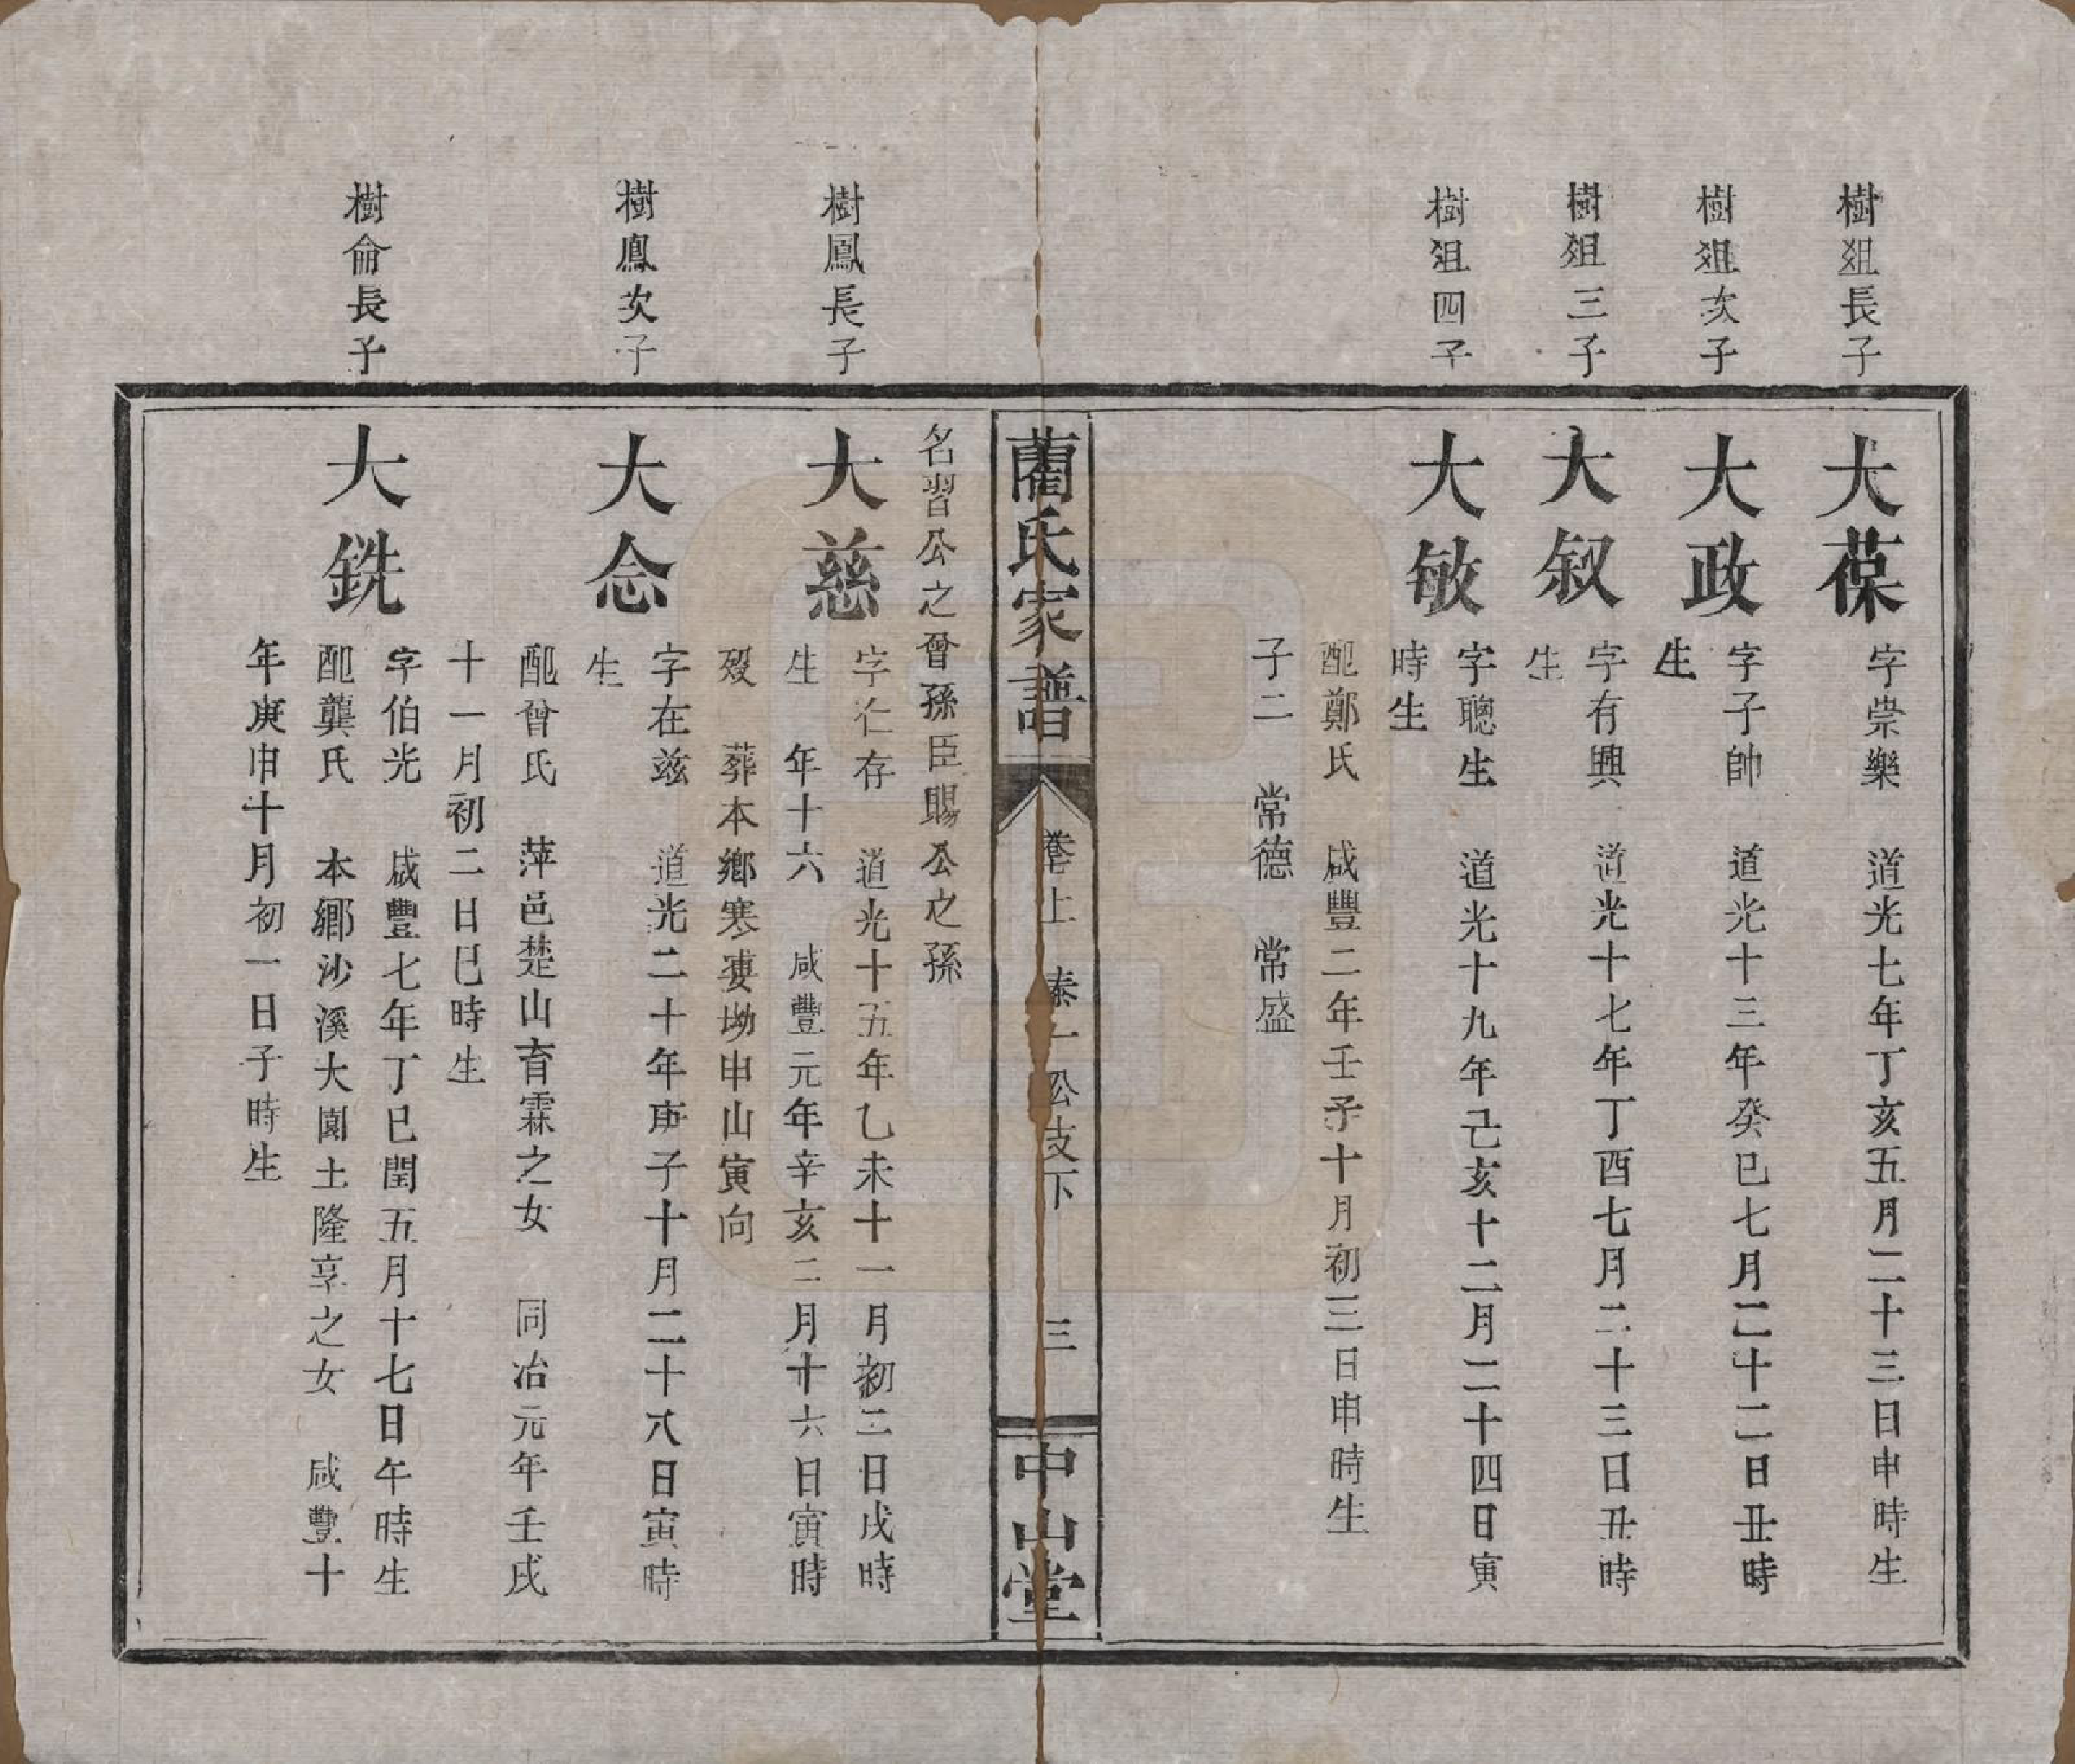 樹俎長子
大葆
字崇樂　道光七年丁亥五月二十三日申時生
樹俎次子
大政
字子帥　道光十三年癸巳七月二十二日丑時
生
樹俎三子
大叙
字有興　道光十七年丁酉七月二十三日丑時
生
樹俎四子
大敏
字聰生　道光十九年己亥十二月二十四日寅
時生
配鄭氏　咸豐二年壬子十月初三日申時生
子二　常德　常盛
藺氏家譜
卷上　泰一公支下　三
中山堂
名習公之曾孫臣賜公之孫
樹鳳長子
大慈
字仁存　道光十五年乙未十一月初二日戌時
生　年十六　咸豐元年辛亥二月十六日寅時
歿　葬本鄉寒婆坳申山寅向
樹鳳次子
大念
字在兹　道光二十年庚子十月二十八日寅時
生
配曾氏　萍邑楚山育霖之女　同治元年壬戌
十一月初二日巳時生
樹侖長子
大銑
字伯光　咸豐七年丁巳閏五月十七日午時生
配龔氏　本鄉沙溪大園土隆享之女　咸豐十
年庚申十月初一日子時生